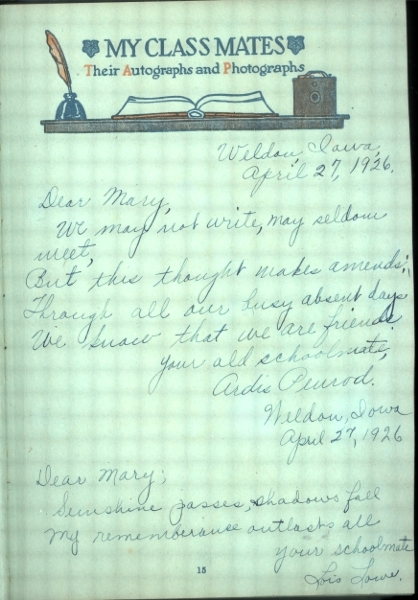 MY CLASS MATES
Their Autographs and Photographs
Weldon, Iowa,
April 27, 1926.
Dear Mary,
We may not write, may seldom
meet,
But this thought makes amends;
Through all our busy absent days
We know that we are friends
your old schoolmate,
Ardis Penrod.
Weldon, Iowa
April 27, 1926
Dear Mary;
Sunshine passes, shadows fall
My rememberance outlasts all
your schoolmate
Lois Lowe.
15